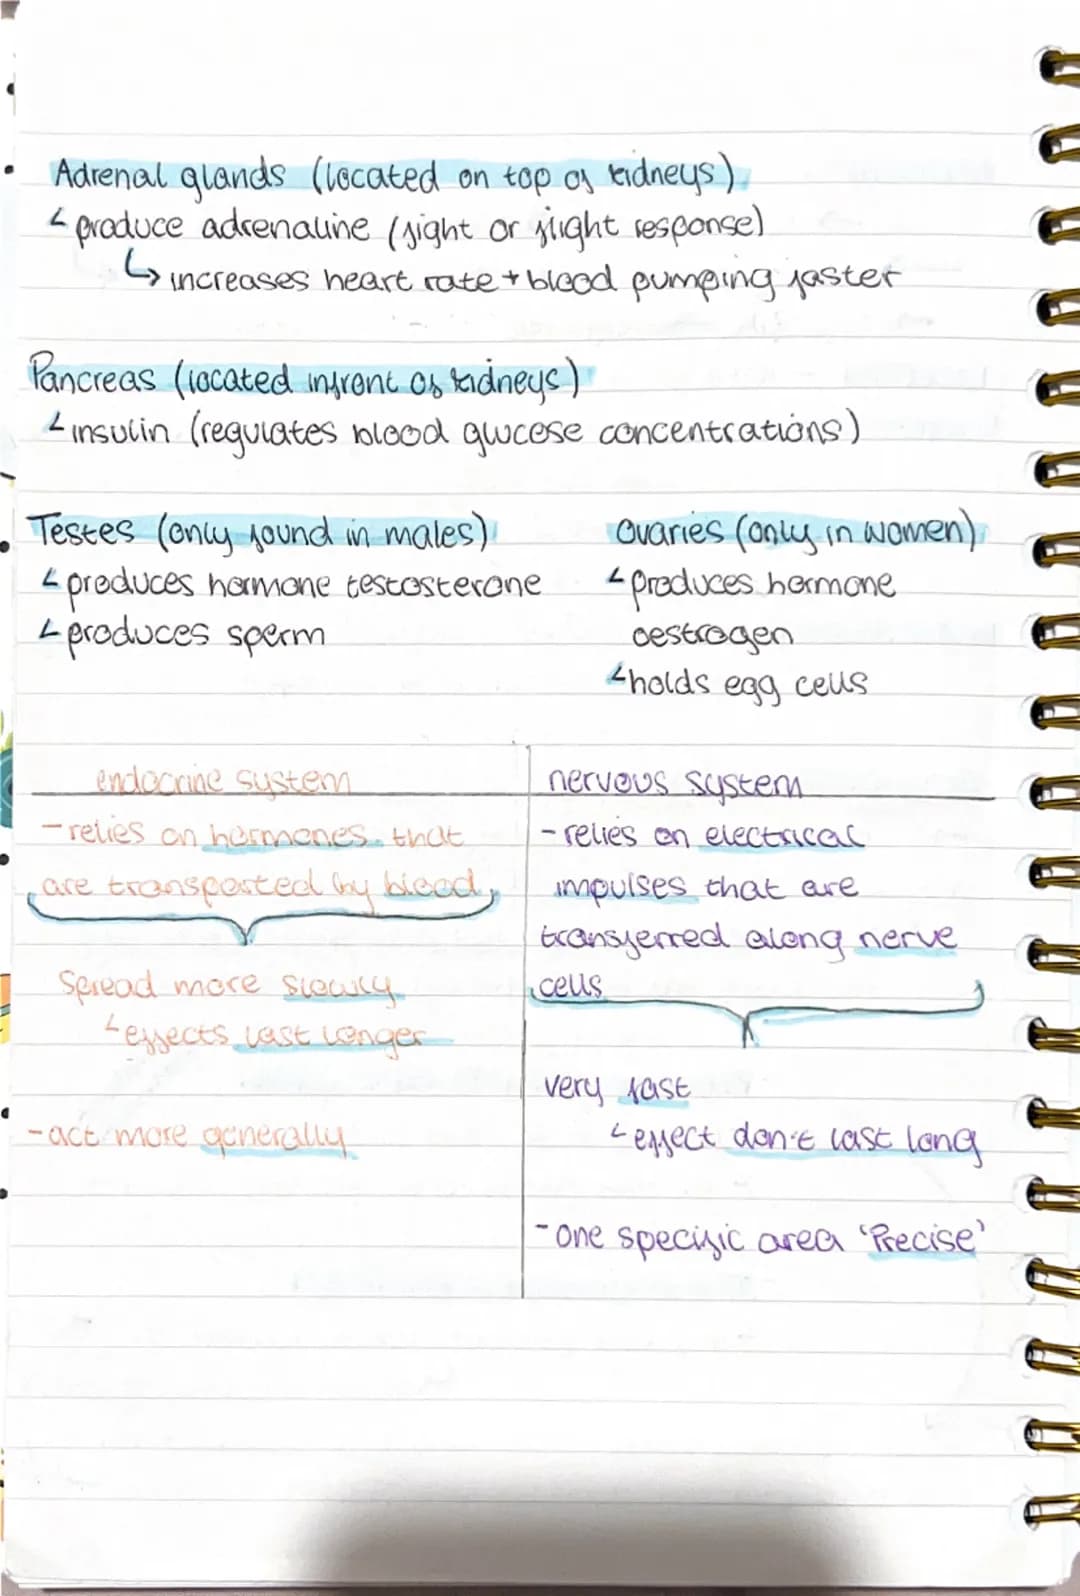 Adrenal glands (located on top of kidneys)
↳ produce adrenaline (fight or flight response)
↳ increases heart rate + blood pumping faster
Pancreas (located infront of kidneys)
↳ insulin (regulates blood glucose concentrations)
Testes (only found in males)
↳ produces hormone testosterone
↳ produces sperm
Ovaries (only in women)
↳ produces hormone
oestrogen
↳ holds egg cells
endocrine system
- relies on hormones that
are transported by blood
Spread more slowly
↳ effects last longer
- act more generally
nervous system
- relies on electrical
impulses that are
transferred along nerve
cells
very fast
↳ effect don't last long
- one specific area 'Precise'